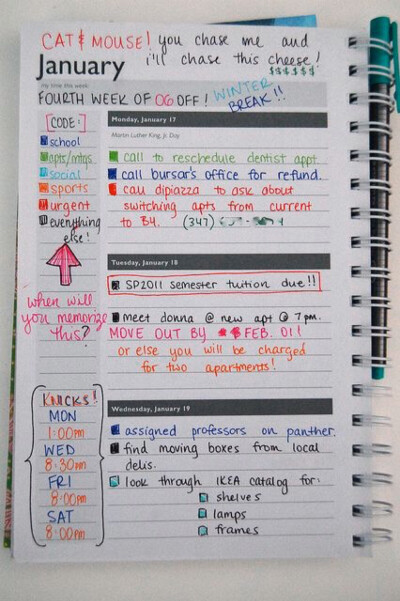 CAT & MOUSE! you chase me and
i'll chase this cheese!
$$$$$$
January
my time this week:
FOURTH WEEK OF 06 OFF! WINTER
BREAK!!
[CODE:]
school
apts/mtgs
social
sports
urgent
everything
else!
when will
you memorize
this?
KNICKS!
MON
1:00pm
WED
8:30pm
FRI
8:00pm
SAT
8:00pm
Monday, January 17
Martin Luther King, Jr. Day
call to reschedule dentist appt.
call bursar's office for refund.
call dipiazza to ask about
switching apts from current
to B4. (347)
Tuesday, January 18
SP2011 semester tuition due!!
meet donna @ new apt @ 7pm.
MOVE OUT BY FEB. 01!
or else you will be charged
for two apartments!
Wednesday, January 19
assigned professors on panther.
find moving boxes from local
delis.
look through IKEA catalog for:
shelves
lamps
frames